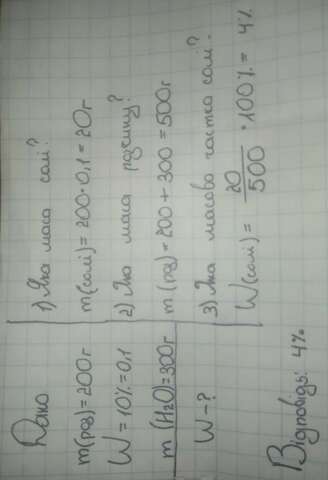 Дано
m(роз)=200г
W = 10%=0,1
m (H2O)=300г
W-?
1) Яка маса солі?
m(солі)=200·0,1=20г
2) Яка маса розчину?
m (роз) =200+300=500г
3) Яка масова частка солі.?
W(солі)= 20/500 · 100% = 4%
Відповідь: 4%